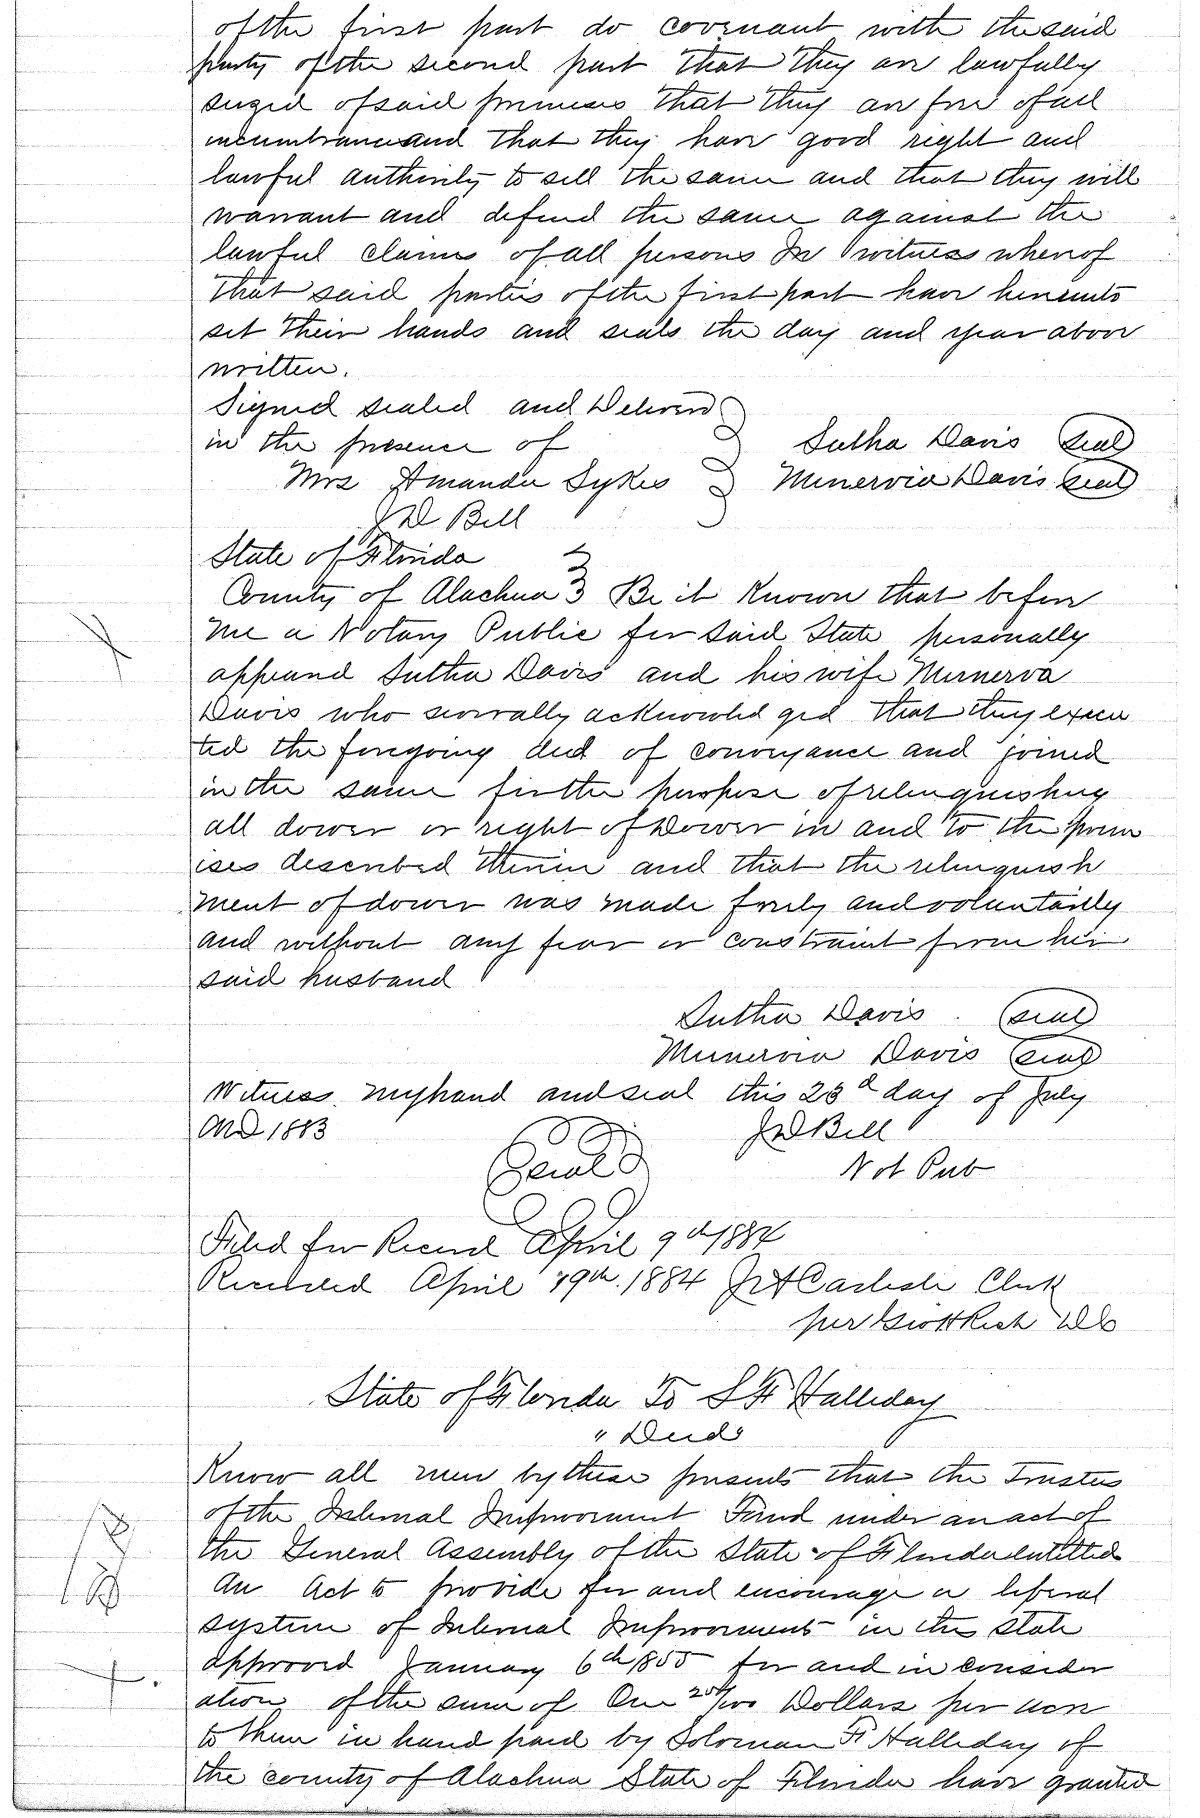 of the first part do covenant with the said
party of the second part that they are lawfully
seized of said premises that they are free of all
incumbrances and that they have good right and
lawful authority to sell the same and that they will
warrant and defend the same against the
lawful claims of all persons In witness whereof
that said parties of the first part have hereunto
set their hands and seals the day and year above
written.
Signed sealed and Delivered
in the presence of Sutha Davis seal
Mrs Amanda Sykes Minervia Davis seal
J D Bell
State of Florida
County of Alachua Be it Known that before
me a Notary Public for said State personally
appeared Sutha Davis and his wife Minerva
Davis who severally acknowledged that they execu
ted the foregoing deed of conveyance and joined
in the same for the purpose of relinquishing
all dower or right of Dower in and to the prem
ises described therein and that the relinquish
ment of dower was made freely and voluntarily
and without any fear or constraint from her
said husband
Sutha Davis. seal
Minervia Davis seal
Witness my hand and seal this 23d day of July
AD 1883 J D Bell
Seal Not Pub
Filed for Record April 9th 1884
Recorded April 19th. 1884 J A Carlisle Clerk
per Geo H Rich DC
State of Florida To S F Halliday
" Deed
Know all men by these presents that the Trustees
of the Internal Improvement Fund under an act of
the General Assembly of the State of Florida entitled
An Act to provide for and encourage a liberal
system of Internal Improvements in the State
approved January 6th 1855 for and in consider
ation of the sum of One 20/100 Dollars per acre
to them in hand paid by Soloman F Halliday of
the county of Alachua State of Florida have granted